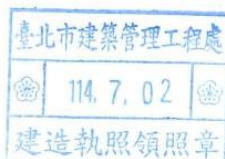 臺北市建築管理工程處
114. 7. 02
建造執照領照章